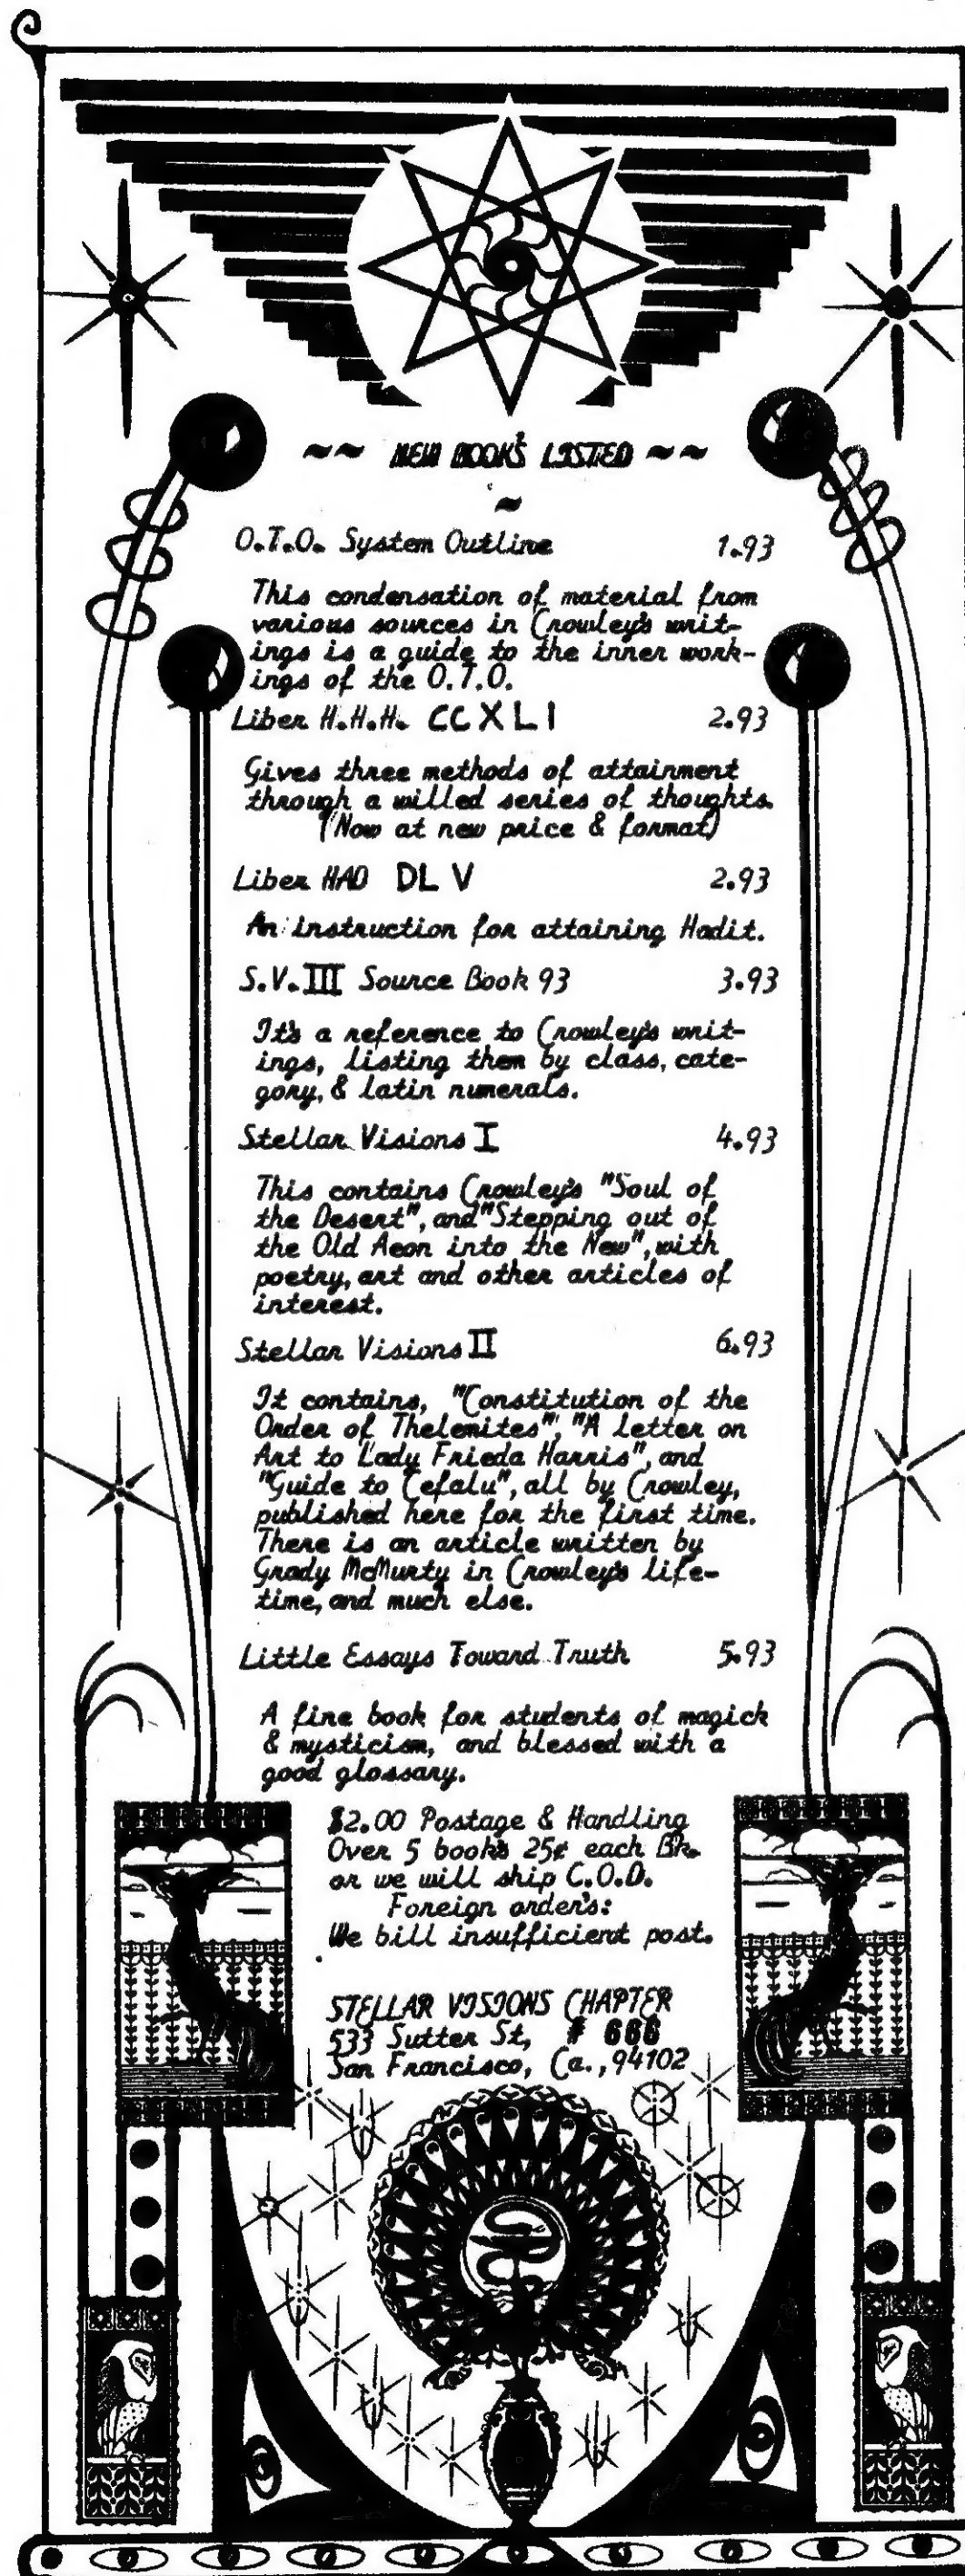 ~~ NEW BOOK'S LISTED ~~
~
O.T.O. System Outline 1.93
This condensation of material from
various sources in Crowley's writ-
ings is a guide to the inner work-
ings of the O.T.O.
Liber H.H.H. CCXLI 2.93
Gives three methods of attainment
through a willed series of thoughts.
(Now at new price & format)
Liber HAD DLV 2.93
An instruction for attaining Hadit.
S.V.III Source Book 93 3.93
It's a reference to Crowley's writ-
ings, listing them by class, cate-
gory, & latin numerals.
Stellar Visions I 4.93
This contains Crowley's "Soul of
the Desert", and "Stepping out of
the Old Aeon into the New", with
poetry, art and other articles of
interest.
Stellar Visions II 6.93
It contains, "Constitution of the
Order of Thelemites", "A Letter on
Art to Lady Frieda Harris", and
"Guide to Cefalu", all by Crowley,
published here for the first time.
There is an article written by
Grady McMurty in Crowley's life-
time, and much else.
Little Essays Toward Truth 5.93
A fine book for students of magick
& mysticism, and blessed with a
good glossary.
$2.00 Postage & Handling
Over 5 book's 25¢ each Bk.
or we will ship C.O.D.
Foreign order's:
We bill insufficient post.
STELLAR VISIONS CHAPTER
533 Sutter St, # 666
San Francisco, Ca., 94102